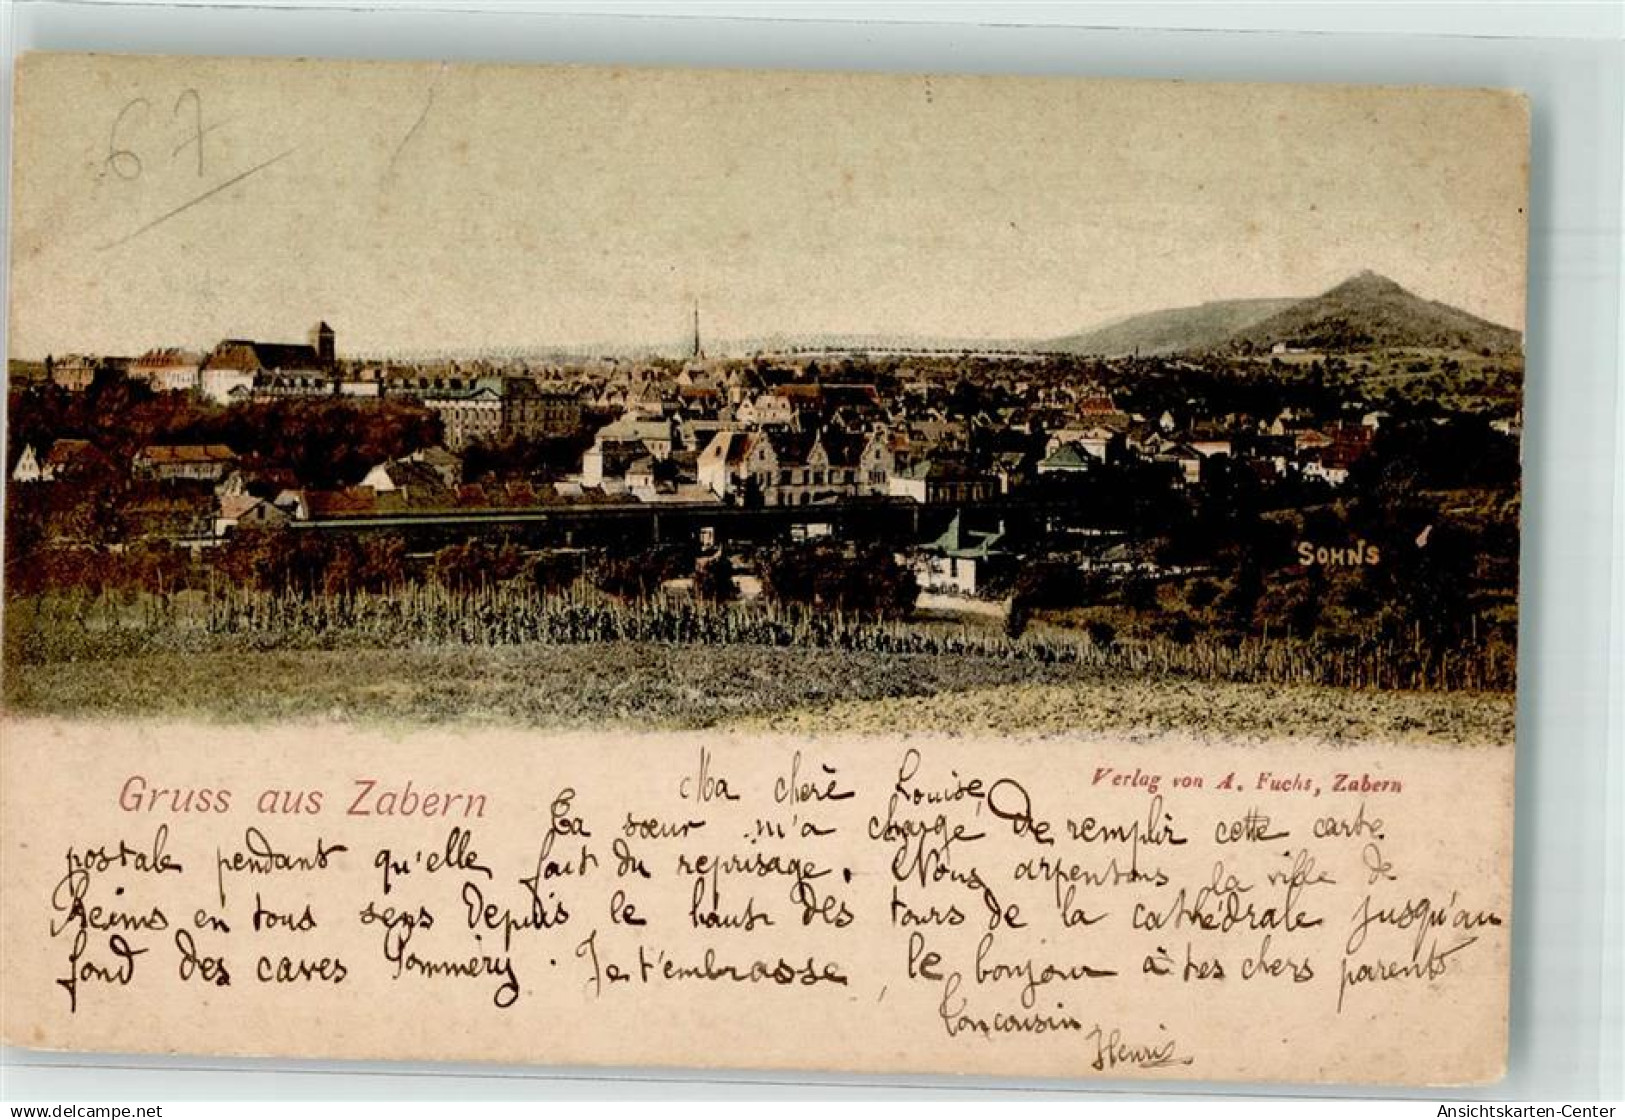 67
SOHNS
Gruss aus Zabern
Verlag von A. Fuchs, Zabern
Ma chère Louise,
Ta sœur m'a chargé de remplir cette carte
postale pendant qu'elle fait du reprisage. Nous arpentons la ville de
Reims en tous sens depuis le haut des tours de la cathédrale jusqu'au
fond des caves Pommery. Je t'embrasse, le bonjour à tes chers parents
Ton cousin
Henri
www.delcampe.net
Ansichtskarten-Center